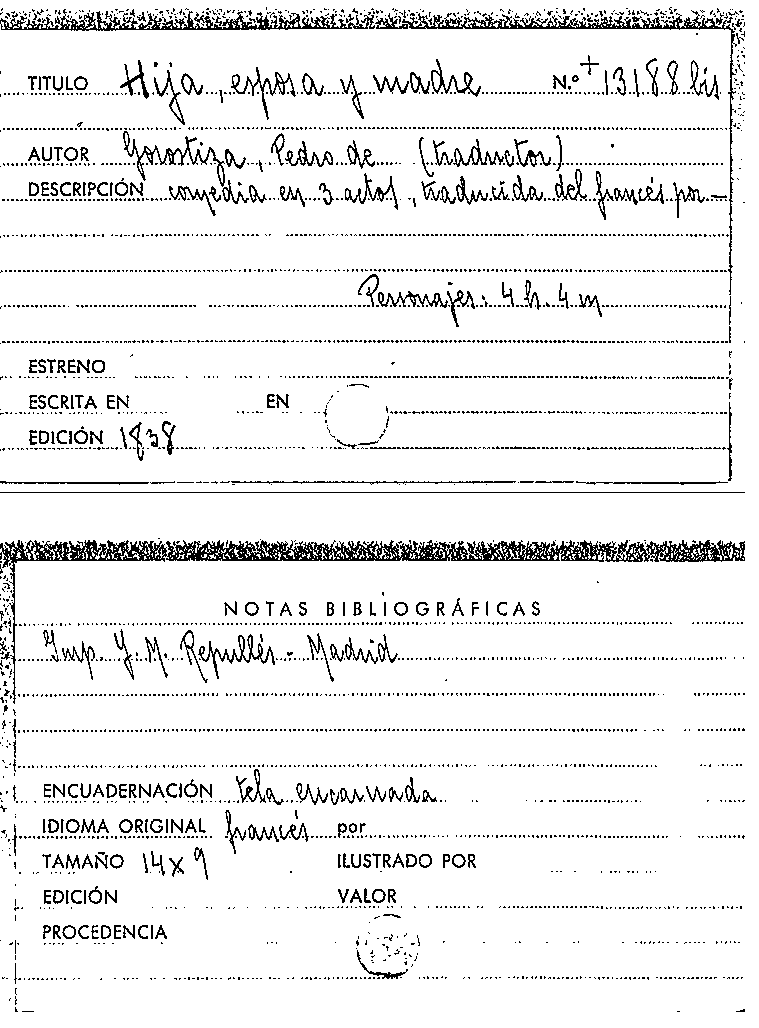 TITULO Hija, esposa y madre N.º + 13188 bis
AUTOR Gorostiza, Pedro de (traductor)
DESCRIPCIÓN comedia en 3 actos, traducida del francés por —
Personajes: 4 h. 4 m
ESTRENO
ESCRITA EN EN
EDICIÓN 1838
NOTAS BIBLIOGRÁFICAS
Imp. Y. M. Repullés - Madrid
ENCUADERNACIÓN tela encarnada
IDIOMA ORIGINAL francés por
TAMAÑO 14 x 9 ILUSTRADO POR
EDICIÓN VALOR
PROCEDENCIA